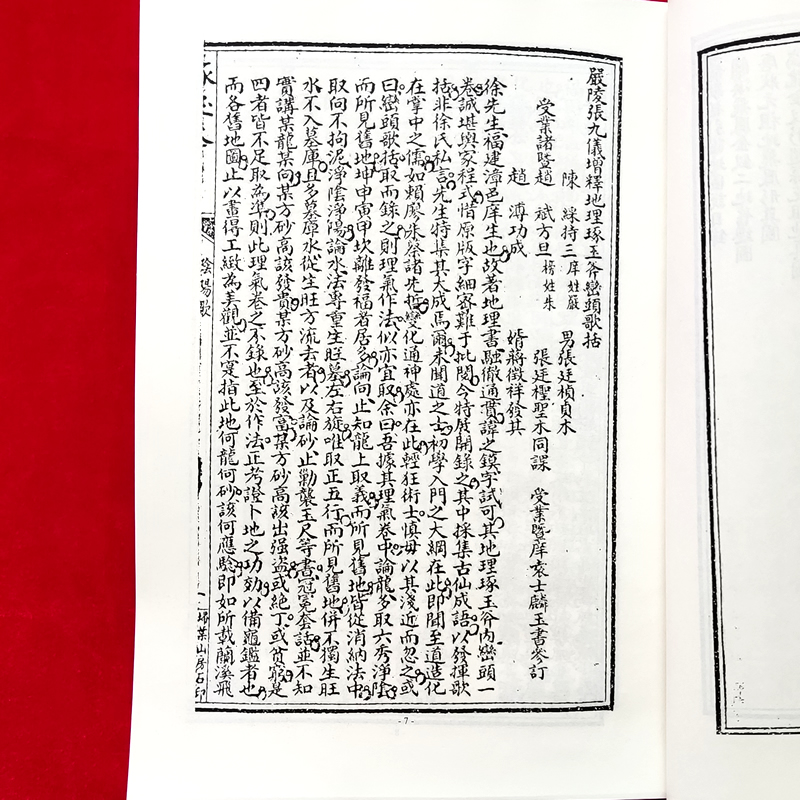 嚴陵張九儀增釋地理琢玉斧巒頭歌括
陳 綵持三庠姓嚴 男張廷楨貞木
受業諸暨趙 斌方旦榜姓朱 張廷樫聖木同課 受業暨庠袁士麟玉書參訂
趙 溥功成 婿蔣徵祥發其
徐先生福建漳邑庠生也故著地理書融徹通貫諱之鏌字試可其地理琢玉斧內巒頭一
卷誠堪輿家程式惜原版字細密難于批閱今特展開錄之其中採集古仙成語以發揮歌
括非徐氏私言先生特集其大成焉爾未聞道之士初學入門之大綱在此即聞至道造化
在掌中之儒如賴廖朱蔡諸先哲變化通神處亦在此輕狂術士慎毋以其淺近而忽之或
曰巒頭歌括取而錄之則理氣作法似亦宜取余曰吾據其理氣卷中論龍多取六秀淨陰
而所見舊地坤申寅甲坎離發福者居多論向止知龍上取義而所見舊地皆從消納法中
取向不拘泥淨陰淨陽論水法專重生旺墓左右旋唯取正五行而所見舊地併不獨生旺
水不入墓庫且多墓庫水從生旺方流去者以及論砂止勦襲玉尺等書冠冕套話並不知
實講某龍某向某方砂高該發貴某方砂高該發富某方砂高該出强盜或絕丁或貧窮是
四者皆不足取為準則此理氣卷之不錄也至於作法正考證卜地之功効以備龜鑑者也
而各舊地圖止以畫得工緻為美觀並不寔指此地何龍何砂該何應驗即如所載蘭溪飛
陰陽歌
一 埽葉山房石印
- 7 -